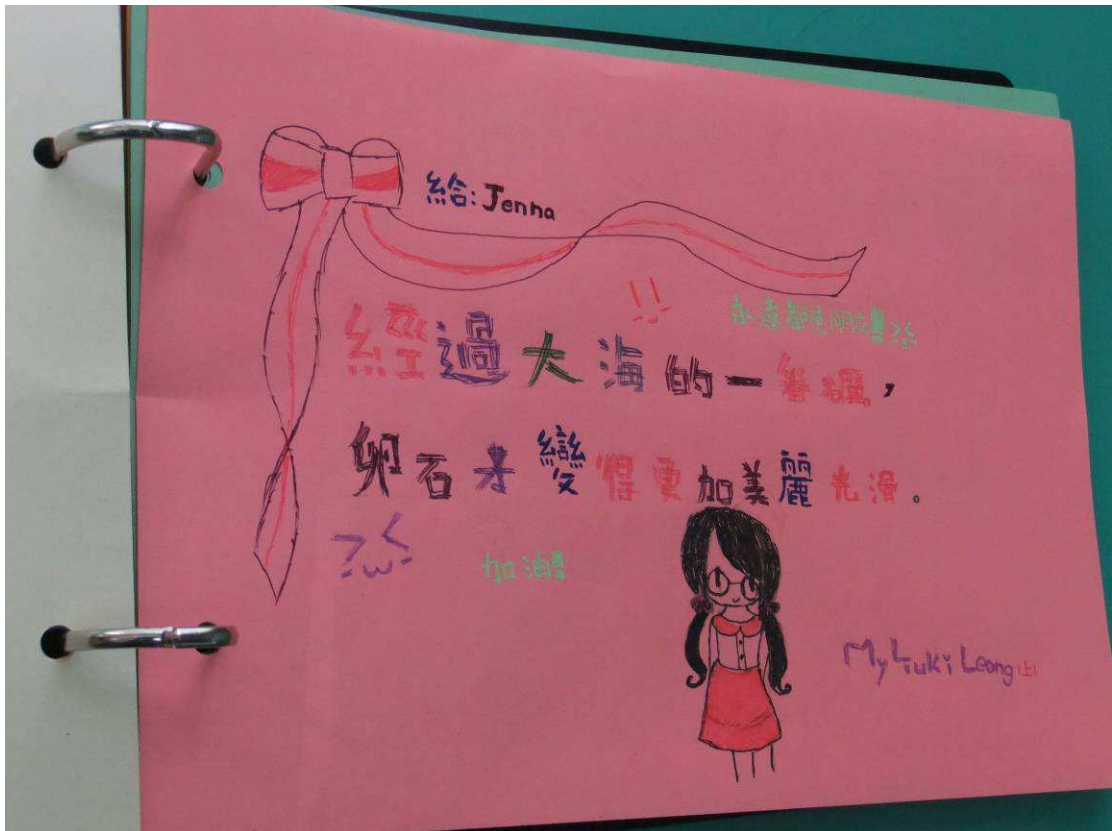 給:Jenna
!!
永遠都是朋友!!
經過大海的一番磯,
卵石才變得更加美麗光滑。
>w<
加油!!
My Liuki Leong 上